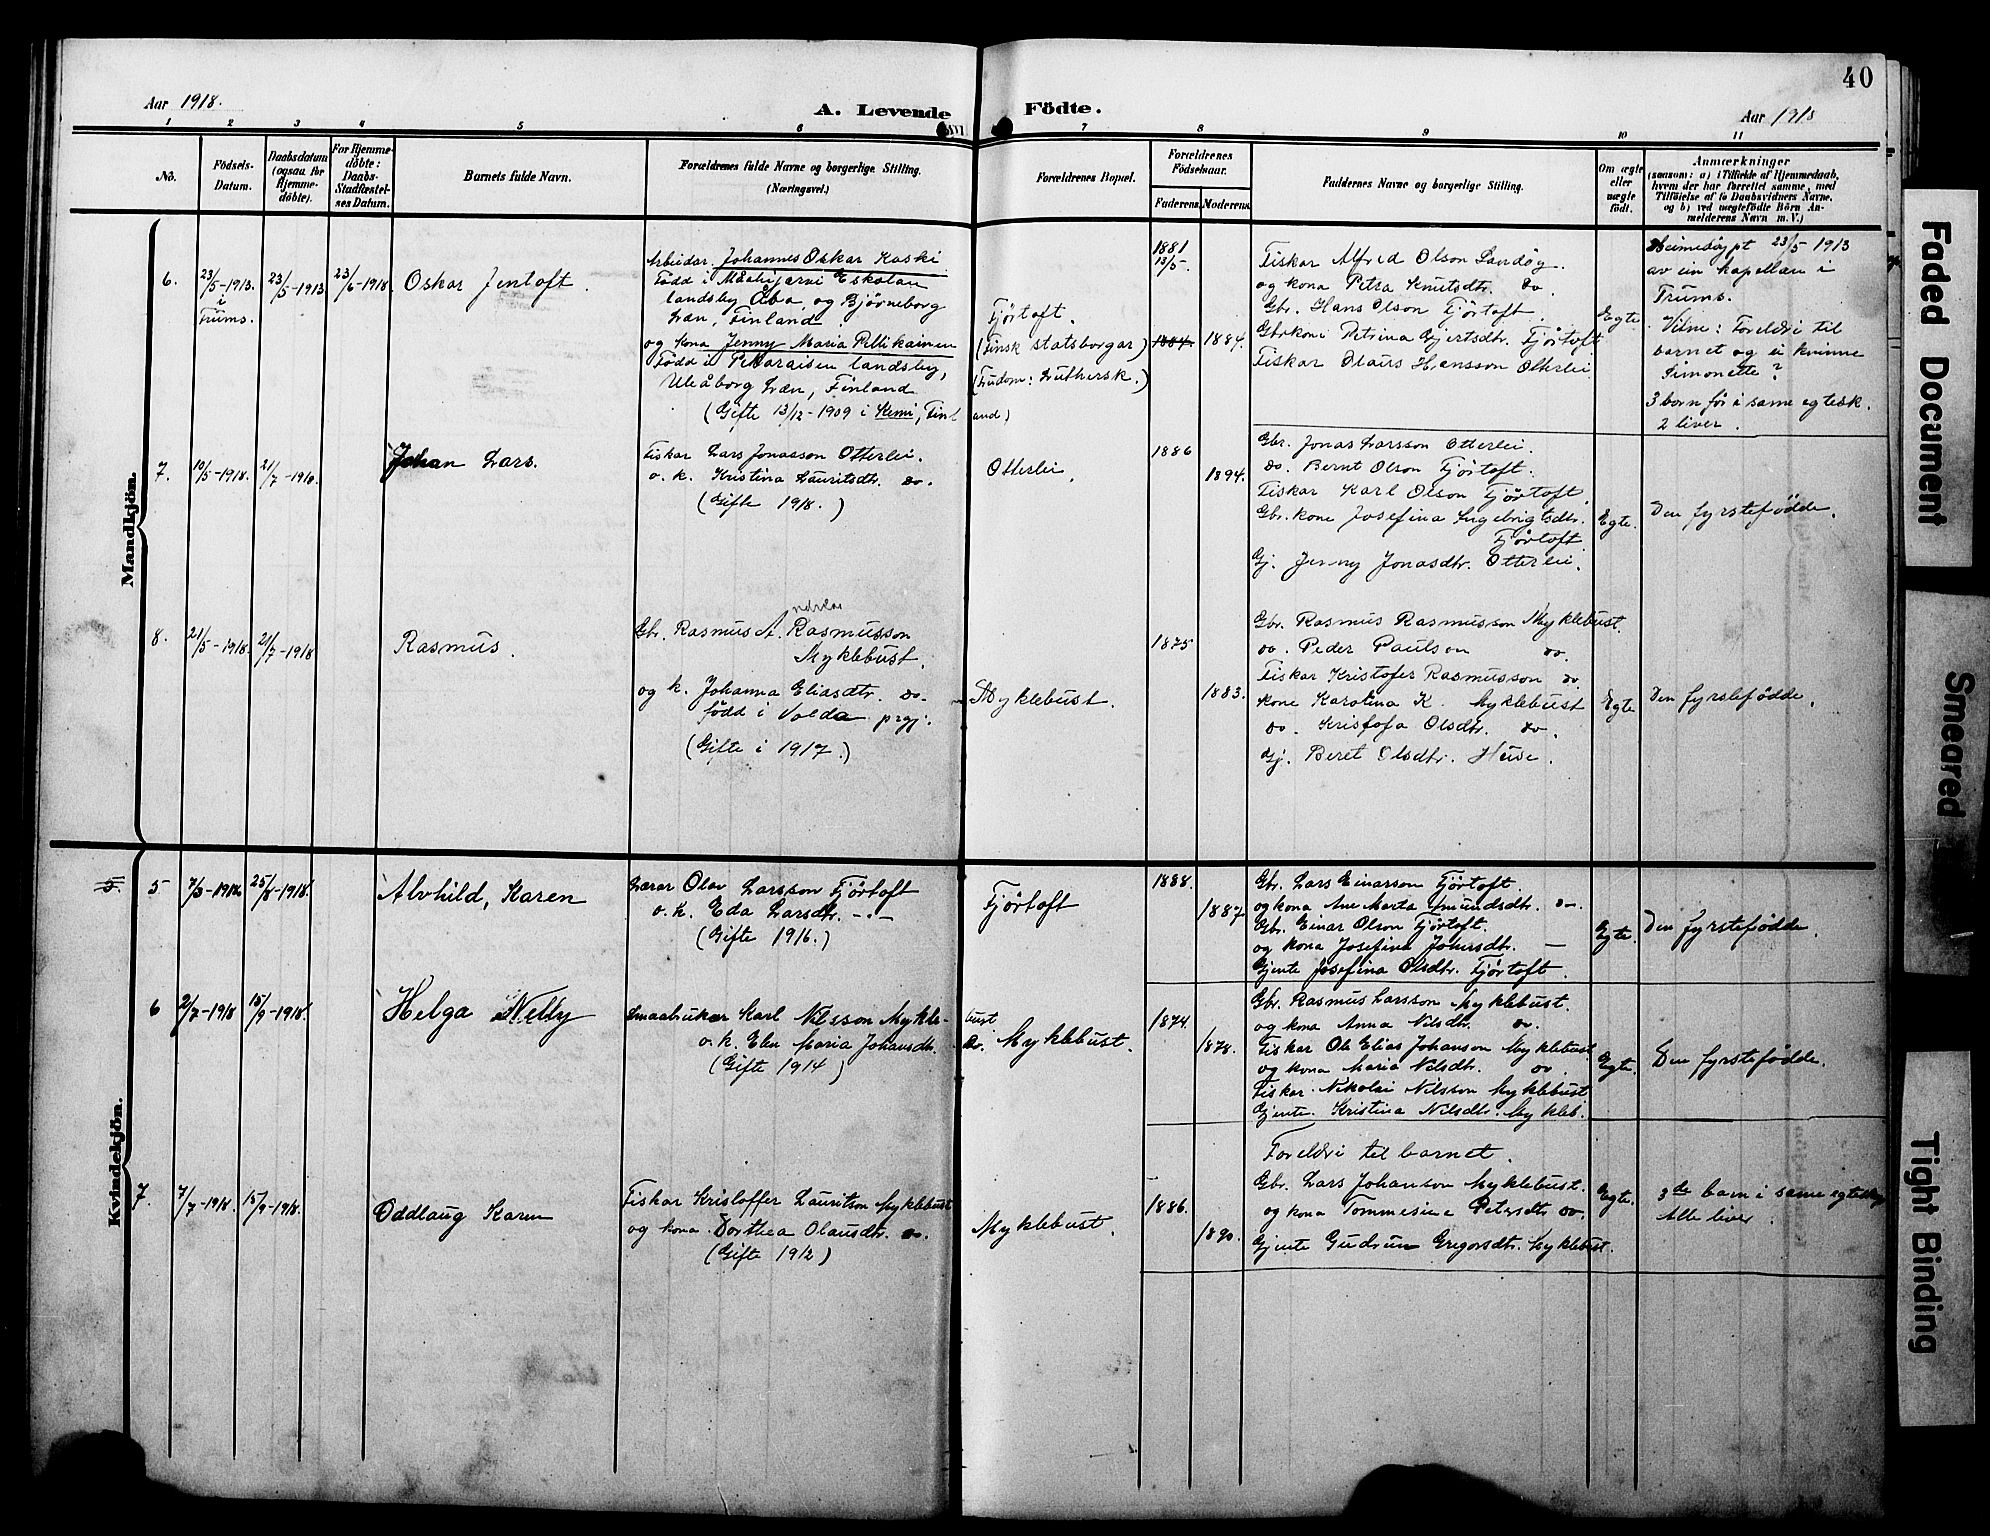 40
Aar 1918.
A. Levende Födte.
Aar 1918
1 2 3 4 5 6 7 8 9 10 11
No.
Födsels-Datum.
Daabsdatum (ogsaa for Hjemme-döbte).
For Hjemme-döbte: Daabs-Stadfæstel-ses Datum.
Barnets fulde Navn.
Forældrenes fulde Navne og borgerlige Stilling.
(Næringsvei.)
Forældrenes Bopæl.
Forældrenes Födselsaar.
Faderens. Moderens.
Faddernes Navne og borgerlige Stilling.
Om ægte eller uægte födt.
Anmærkninger
(saasom: a) i Tilfælde af Hjemmedaab,
hvem der har forrettet samme, med
Tilföielse af to Daabsvidners Navne,
og b) ved uægtefödte Börn An-
melderens Navn m. V.)
Mandkjön.
6.
23/5-1913.
i
Trums.
23/5-1913
23/6-1918
Oskar Jentoft.
Arbeidar Johannes Oskar Kaski
Född i Måahijarvi Eskolan
landsby Åbo og Bjørneborg
Læn, Finland.
og kona Jenny Maria Pellikainen
Född i Petäraisen landsby,
Uleåborg Læn, Finland
(Gifte 13/12-1909 i Kemi, Fin-
land)
Fjörtoft.
(Finsk statsborgar)
(Trudom: Luthersk.)
1881
13/5.
1884.
Fiskar Alfred Olson Sandøy.
og kona Petra Knutsdtr. do.
Gbr. Hans Olson Fjörtoft.
Gbrkone Petrina Gjertsdtr. Fjörtoft
Fiskar Olaus Hansson Otterlei
Egte
Heimedøypt 23/5-1913
av ein kapellan i
Trums.
Vitne: Foreldri til
barnet og ei kvinne
Simonette?
3 born før i same egtesk.
2 liver.
7.
10/5-1918.
21/7-1918.
Johan Lars.
Fiskar Lars Jonasson Otterlei.
o. k. Kristina Lauritsdtr. do.
(Gifte 1918.)
Otterlei.
1886
1894.
Gbr. Jonas Larsson Otterlei.
do. Bernt Olson Fjörtoft.
Fiskar Karl Olson Fjörtoft.
Gbr.kone Josefina Ingebrigtsdtr.
Fjörtoft
Gj. Jenny Jonasdtr. Otterlei.
Egte.
Den fyrstefødde.
8.
21/5-1918.
21/7-1918
Rasmus.
ndreas
Gbr. Rasmus A. Rasmusson
Myklebust.
og k. Johanna Eliasdtr. do.
född i Volda prgj.
(Gifte i 1917.)
Myklebust.
1875
1883.
Gbr. Rasmus Rasmusson Myklebust.
do. Peder Paulson do.
Fiskar Kristofer Rasmusson do.
kone Karolina K. Myklebust
do. Kristofa Olsdtr. do.
Gj. Beret Olsdtr. Huse.
Egte
Den fyrstefødde.
Kvindekjön.
5.
5
25/8-1918.
Alvhild, Karen
Lærar Olav Larsson Fjörtoft
o. k. Eda Larsdtr. - " -
(Gifte 1916.)
Fjörtoft
1888.
1887
Gbr. Lars Einarson Fjörtoft.
og kona Ane Marta Amundsdtr. do.
Gbr. Einar Olson Fjörtoft.
og kona Josefina Johansdtr. —
Gjente Josefina Olsdtr. Fjörtoft.
Egte.
Den fyrstefødde.
6
2/7-1918
15/9-1918.
Helga Nelly
Smaabrukar Karl Nilsson Mykle-
bust
o. k. Elen Maria Johansdtr. do.
(Gifte 1914)
Myklebust.
1874.
1878.
Gbr. Rasmus Larsson Myklebust.
og kona Anna Nilsdtr. do.
Fiskar Ole Elias Johanson Myklebust
og kona Maria Nilsdtr. do.
Fiskar Nikolai Nilsson Myklebust
Gjente. Kristina Nilsdtr. Mykleb.
Egte.
Den fyrstefødde.
7.
7/7-1918.
15/9-1918.
Oddlaug Karen
Fiskar Kristoffer Lauritson Myklebust
og kona Dorthea Olausdtr. do.
(Gifte 1912)
Myklebust.
1886.
1890.
Foreldri til barnet.
Gbr. Lars Johanson Myklebust.
og kona Tommesine Petersdtr do.
Gjente Gudrun Gregorsdtr. Myklebust.
Egte.
3de barn i same egtesk.
Alle liver.
Faded Document
Smeared
Tight Binding